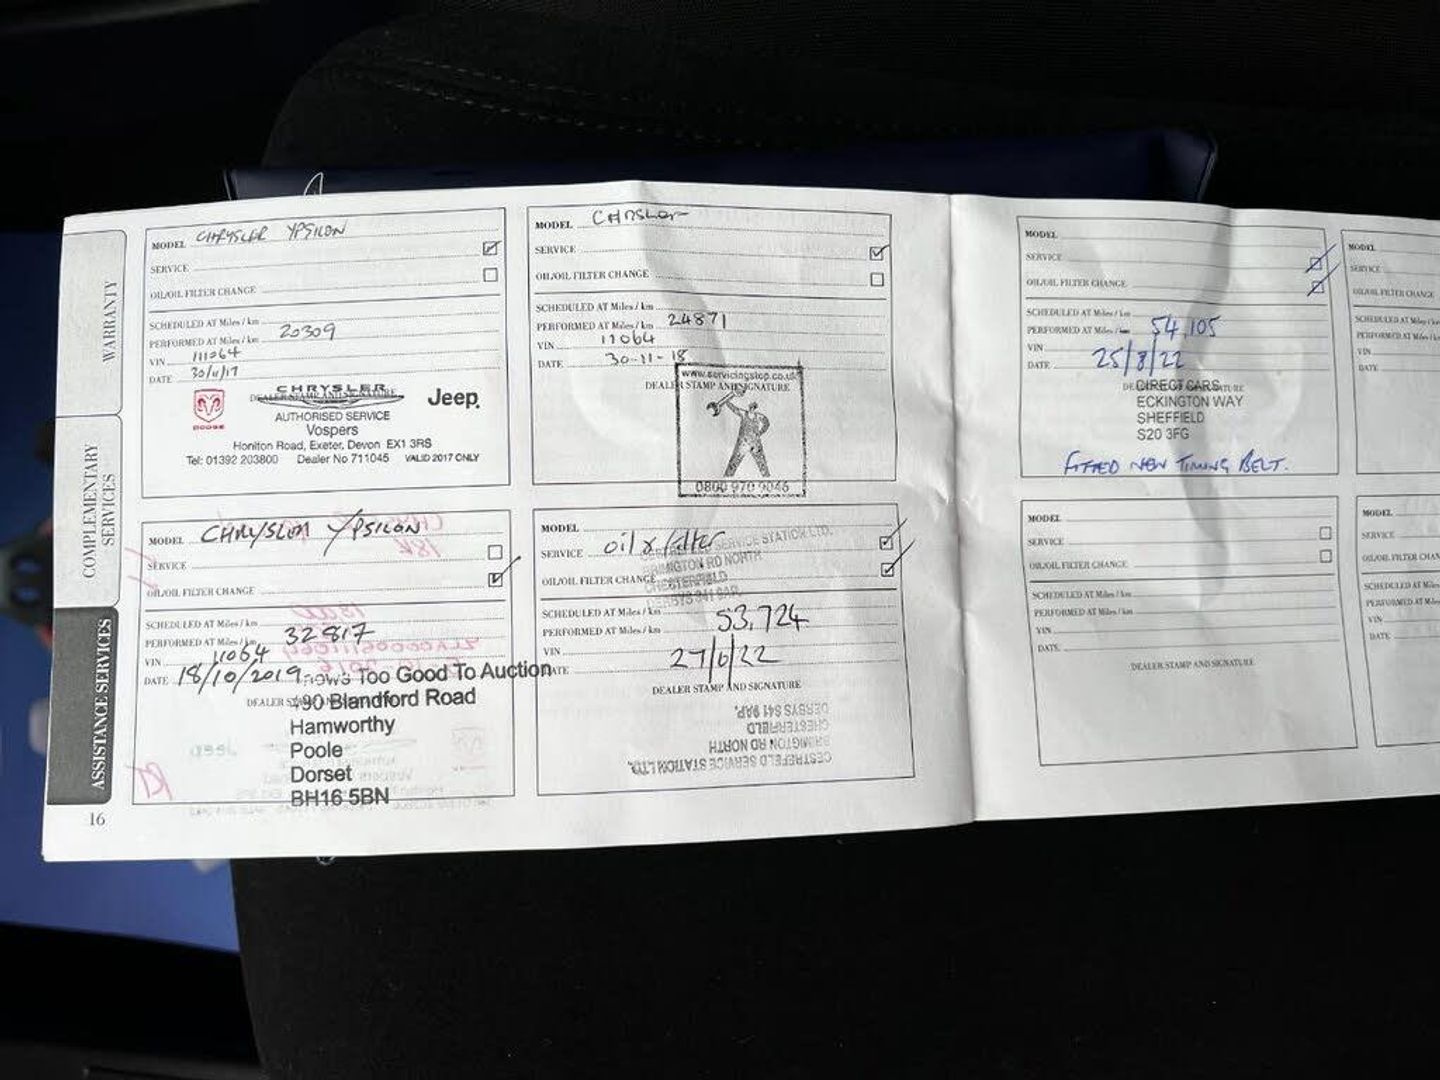 WARRANTY
COMPLEMENTARY
SERVICES
ASSISTANCE SERVICES
16
MODEL CHRYSLER YPSILON
SERVICE
OIL/OIL FILTER CHANGE
SCHEDULED AT Miles / km
PERFORMED AT Miles / km 20309
VIN 111064
DATE 30/11/17
DEALER STAMP AND SIGNATURE
CHRYSLER
DODGE
Jeep
AUTHORISED SERVICE
Vospers
Honiton Road, Exeter, Devon EX1 3RS
Tel: 01392 203800 Dealer No 711045 VALID 2017 ONLY
MODEL CHRYSLER
SERVICE
OIL/OIL FILTER CHANGE
SCHEDULED AT Miles / km
PERFORMED AT Miles / km 24871
VIN 11064
DATE 30-11-18
DEALER STAMP AND SIGNATURE
www.servicingstop.co.uk
0800 970 9046
MODEL CHRYSLER YPSILON
SERVICE
OIL/OIL FILTER CHANGE
SCHEDULED AT Miles / km
PERFORMED AT Miles / km 32817
VIN 11064
DATE 18/10/2019
DEALER
Too Good To Auction
490 Blandford Road
Hamworthy
Poole
Dorset
BH16 5BN
MODEL
SERVICE oil & filter
OIL/OIL FILTER CHANGE
SERVICE STATION LTD.
BRIMINGTON RD NORTH
CHESTERFIELD
DERBYS S41 9AP.
SCHEDULED AT Miles / km
PERFORMED AT Miles / km 53,724
VIN
DATE 27/6/22
DEALER STAMP AND SIGNATURE
CESTREFELD SERVICE STATION LTD.
BRIMINGTON RD NORTH
CHESTERFIELD
DERBYS S41 9AP.
MODEL
SERVICE
OIL/OIL FILTER CHANGE
SCHEDULED AT Miles / km
PERFORMED AT Miles / km 54,105
VIN
DATE 25/8/22
DIRECT CARS
ECKINGTON WAY
SHEFFIELD
S20 3FG
FITTED NEW TIMING BELT.
MODEL
SERVICE
OIL/OIL FILTER CHANGE
SCHEDULED AT Miles / km
PERFORMED AT Miles / km
VIN
DATE
DEALER STAMP AND SIGNATURE
MODEL
SERVICE
OIL/OIL FILTER CHANGE
SCHEDULED AT Miles / km
PERFORMED AT Miles / km
VIN
DATE
MODEL
SERVICE
OIL/OIL FILTER CHAN
SCHEDULED AT Miles
PERFORMED AT Miles
VIN
DATE